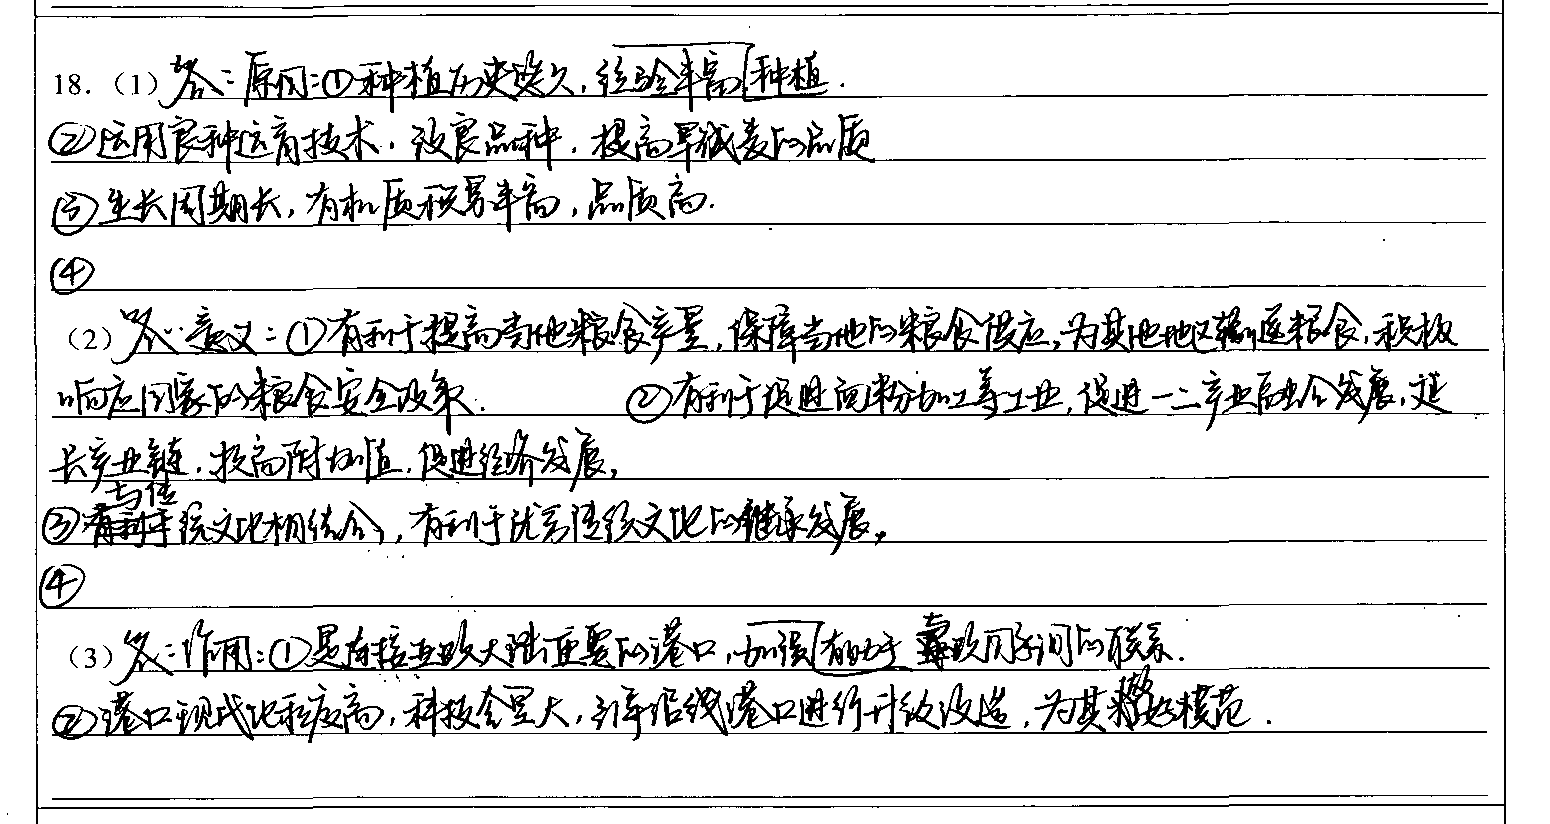 18.（1）答：原因：①种植历史悠久，种植经验丰富.
②运用良种运育技术，改良品种，提高旱碱麦的品质
③生长周期长，有机质积累丰富，品质高.
④
（2）答：意义：①有利于提高当地粮食产量，保障当地的粮食供应，为其他地区输送粮食，积极
响应国家的粮食安全政策.　②有利于促进面粉加工等工业，促进一二产业融合发展，延
长产业链，提高附加值，促进经济发展，
③与传统文化相结合，有利于优秀传统文化的继承发展，
④
（3）答：作用：①是连接亚欧大陆重要的港口，有助于加强亚欧国家间的联系.
②港口现代化程度高，科技含量大，引导沿线港口进行升级改造，为其做好模范.